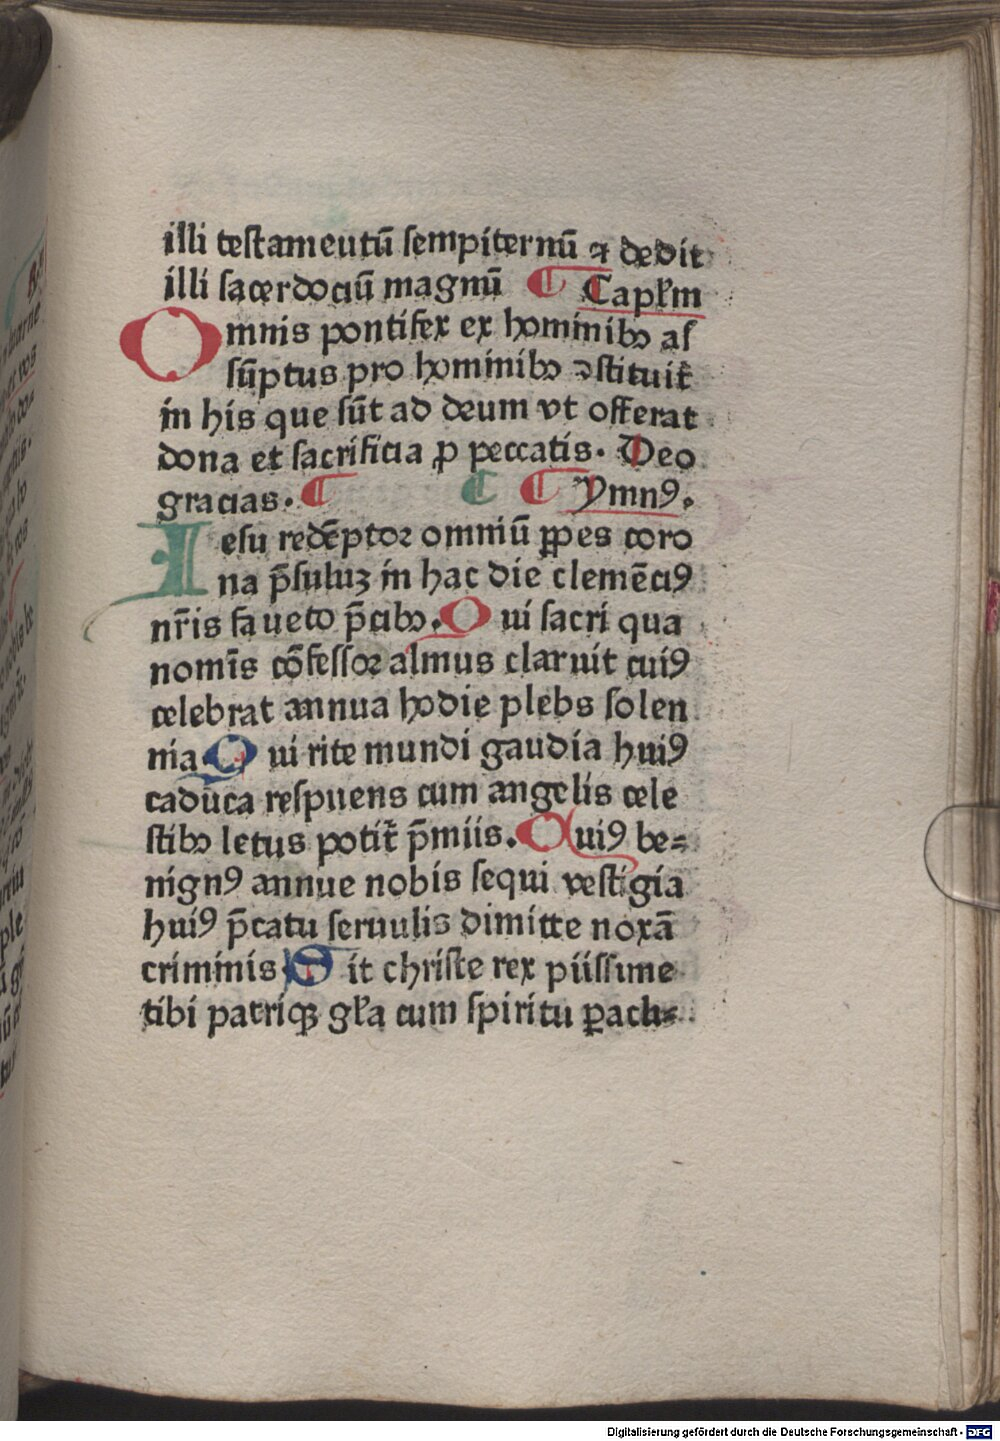 illi testamentū sempiternū ⁊ dedit
illi sacerdociū magnū ¶ Capłm
Omnis pontifex ex hominibꝰ as
sūptus pro hominibꝰ ꝯstituit᷑
in his que sūt ad deum vt offerat
dona et sacrificia ꝓ peccatis. Deo
gracias. ¶ ¶ ¶ Ymnꝰ.
Iesu redēptor omniū ꝑpes coro
na p̄suluꝫ in hac die clemēciꝰ
nr̄is faueto p̄cibꝰ. Qui sacri qua
nomīs cōfessor almus claruit cuiꝰ
celebrat annua hodie plebs solen
nia Qui rite mundi gaudia huiꝰ
caduca respuens cum angelis cele
stibꝰ letus potit᷑ p̄miis. Quiꝰ be⸗
nignꝰ annue nobis sequi vestigia
huiꝰ p̄catu seruulis dimitte noxā
criminis Sit christe rex piissime
tibi patriqꝫ gła cum spiritu ꝑacli⸗
Digitalisierung gefördert durch die Deutsche Forschungsgemeinschaft - DFG